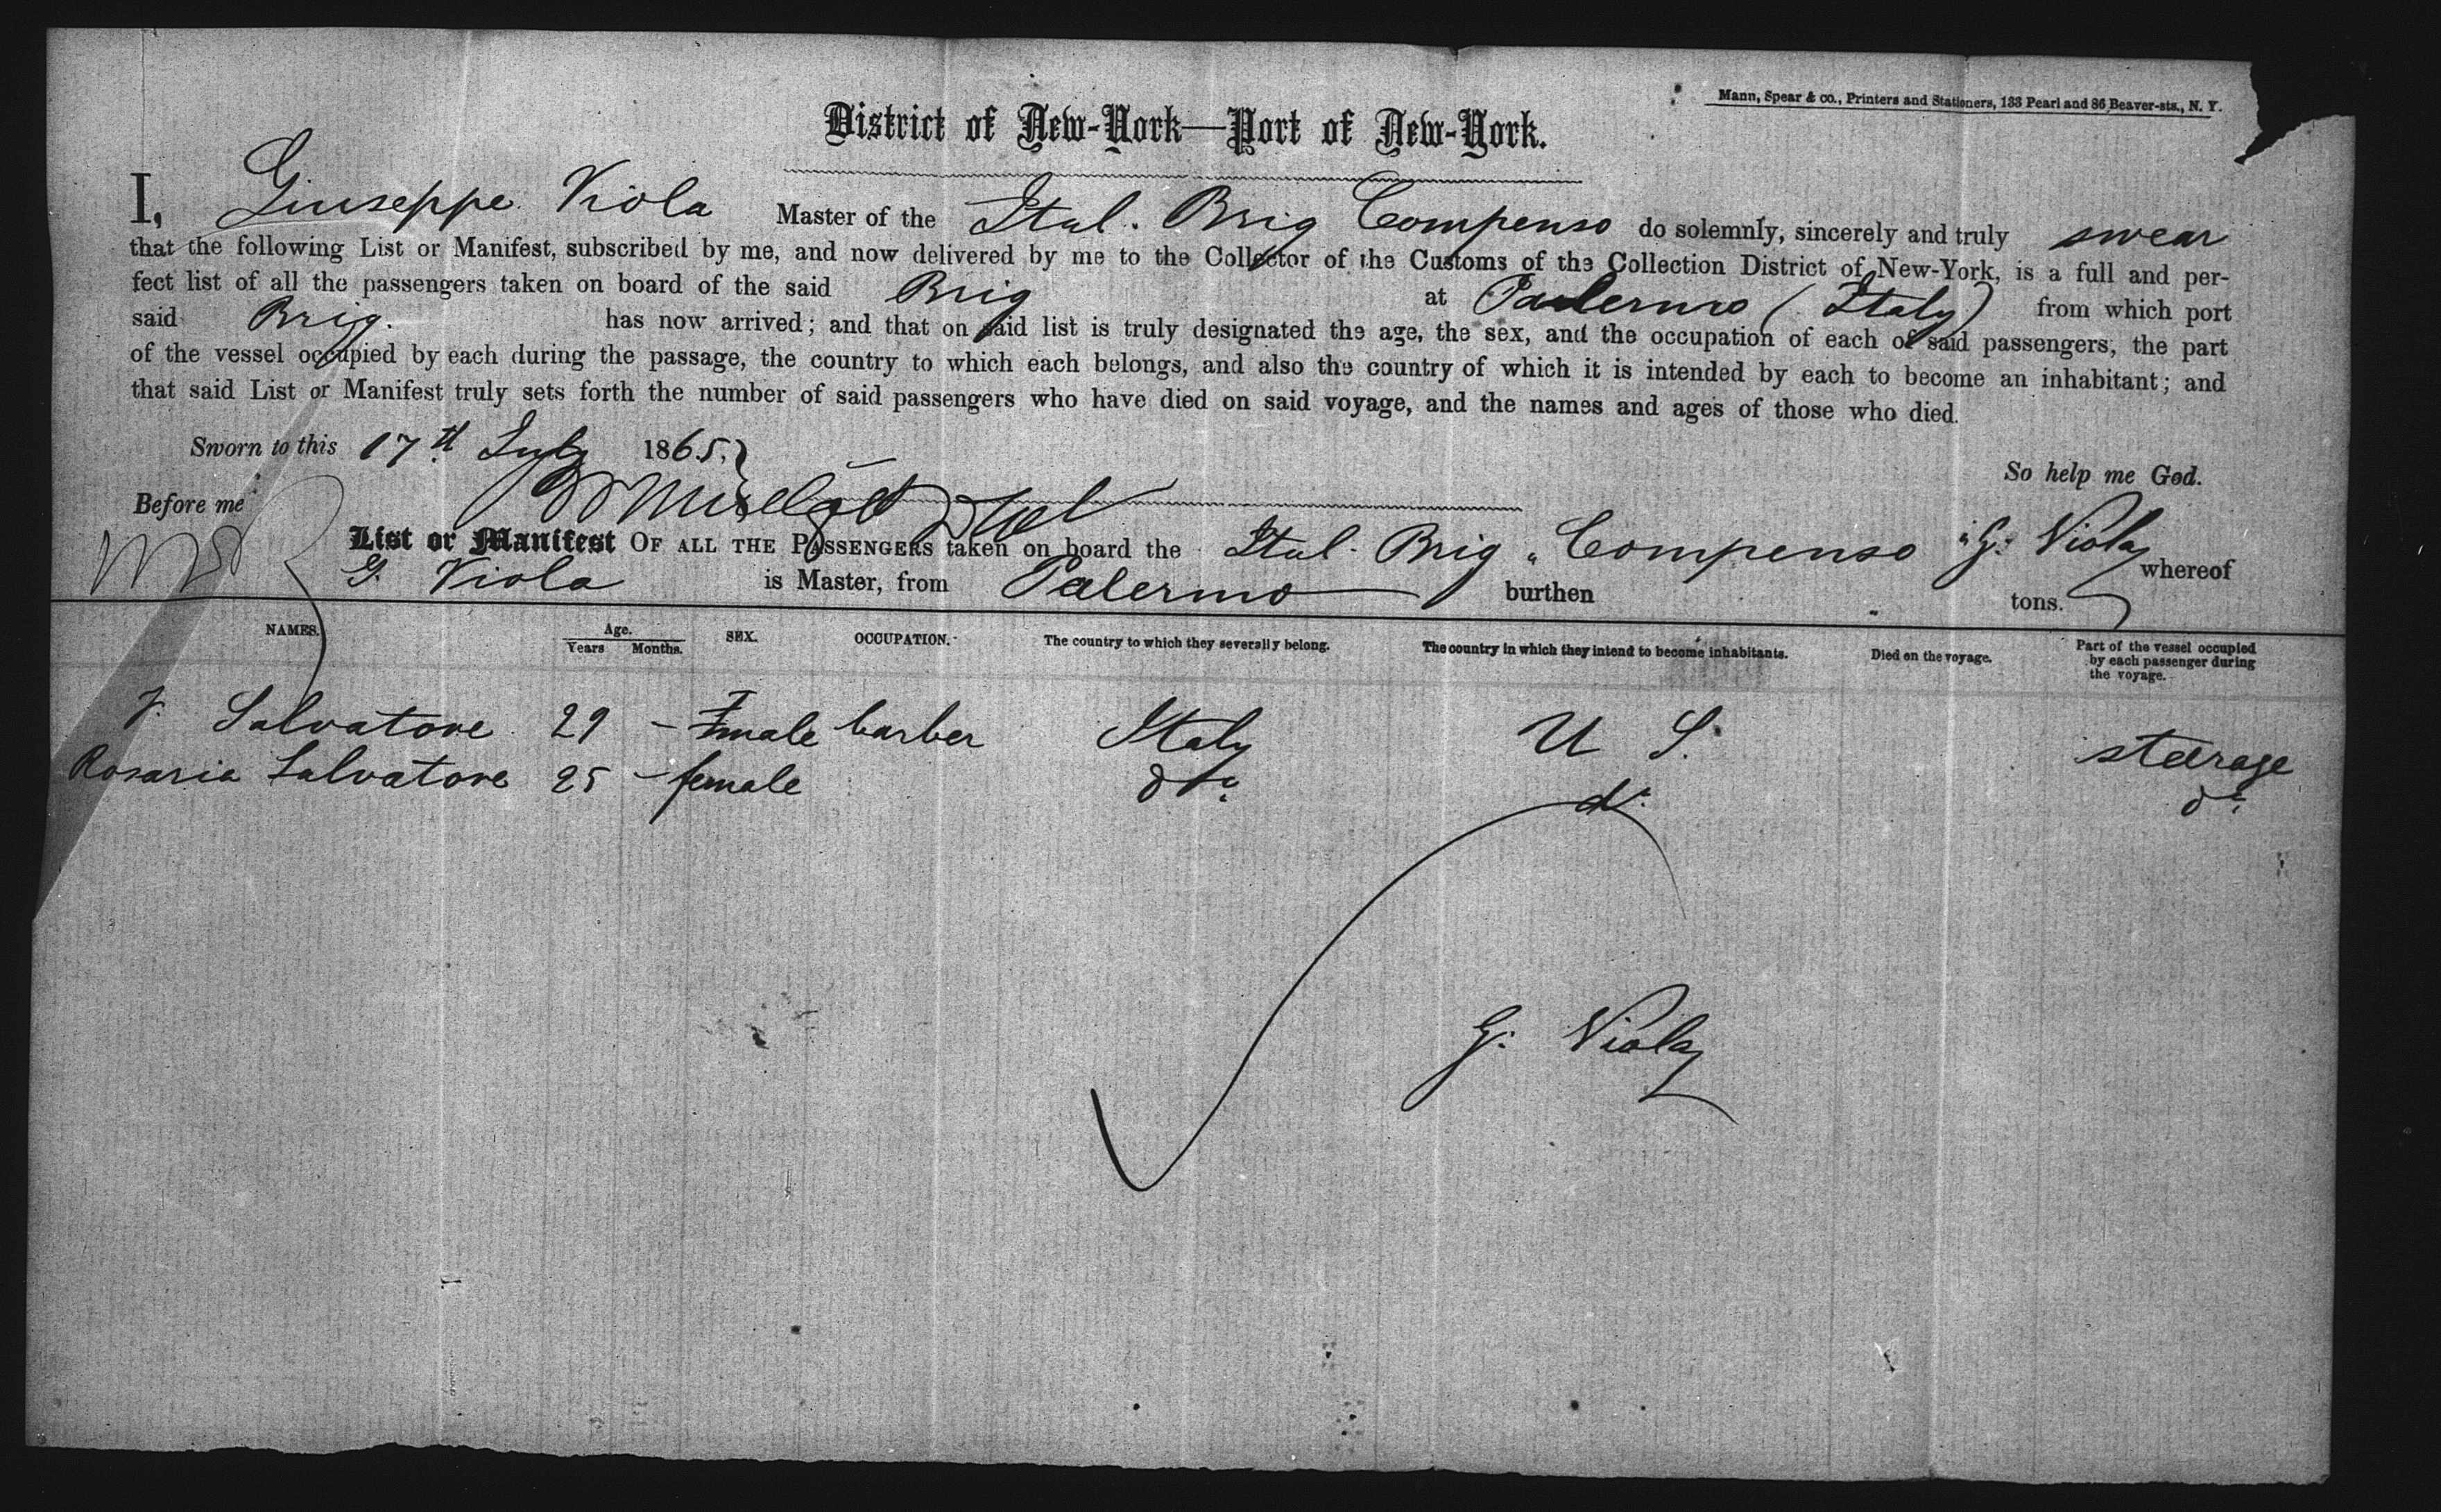 Mann, Spear & co., Printers and Stationers, 133 Pearl and 86 Beaver-sts., N. Y.
District of New-York—Port of New-York.
I, Giuseppe Viola Master of the Ital. Brig Compenso do solemnly, sincerely and truly swear
that the following List or Manifest, subscribed by me, and now delivered by me to the Collector of the Customs of the Collection District of New-York, is a full and per-
fect list of all the passengers taken on board of the said Brig at Palermo (Italy) from which port
said Brig. has now arrived; and that on said list is truly designated the age, the sex, and the occupation of each of said passengers, the part
of the vessel occupied by each during the passage, the country to which each belongs, and also the country of which it is intended by each to become an inhabitant; and
that said List or Manifest truly sets forth the number of said passengers who have died on said voyage, and the names and ages of those who died.
Sworn to this 17th July 1865.
So help me God.
Before me
G. Viola
List or Manifest OF ALL THE PASSENGERS taken on board the Ital. Brig "Compenso" whereof
G. Viola is Master, from Palermo burthen tons.
NAMES. Age. Years Months. SEX. OCCUPATION. The country to which they severally belong. The country in which they intend to become inhabitants. Died on the voyage. Part of the vessel occupied by each passenger during the voyage.
Salvatore 29 - male barber Italy U S. steerage
Rosaria Salvatore 25 - female do do do
G. Viola